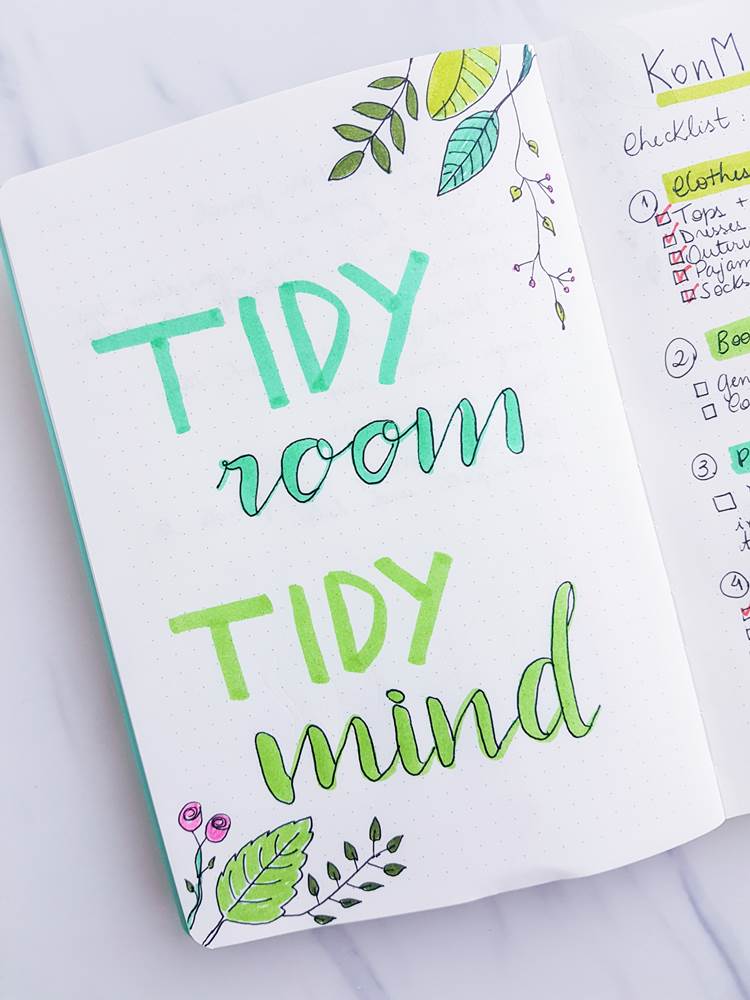 TIDY
room
TIDY
mind
KonM
Checklist :
1 Clothes
Tops +
Dresses
Outerw
Pajam
Socks
2 Boo
Gen
Co
3
4